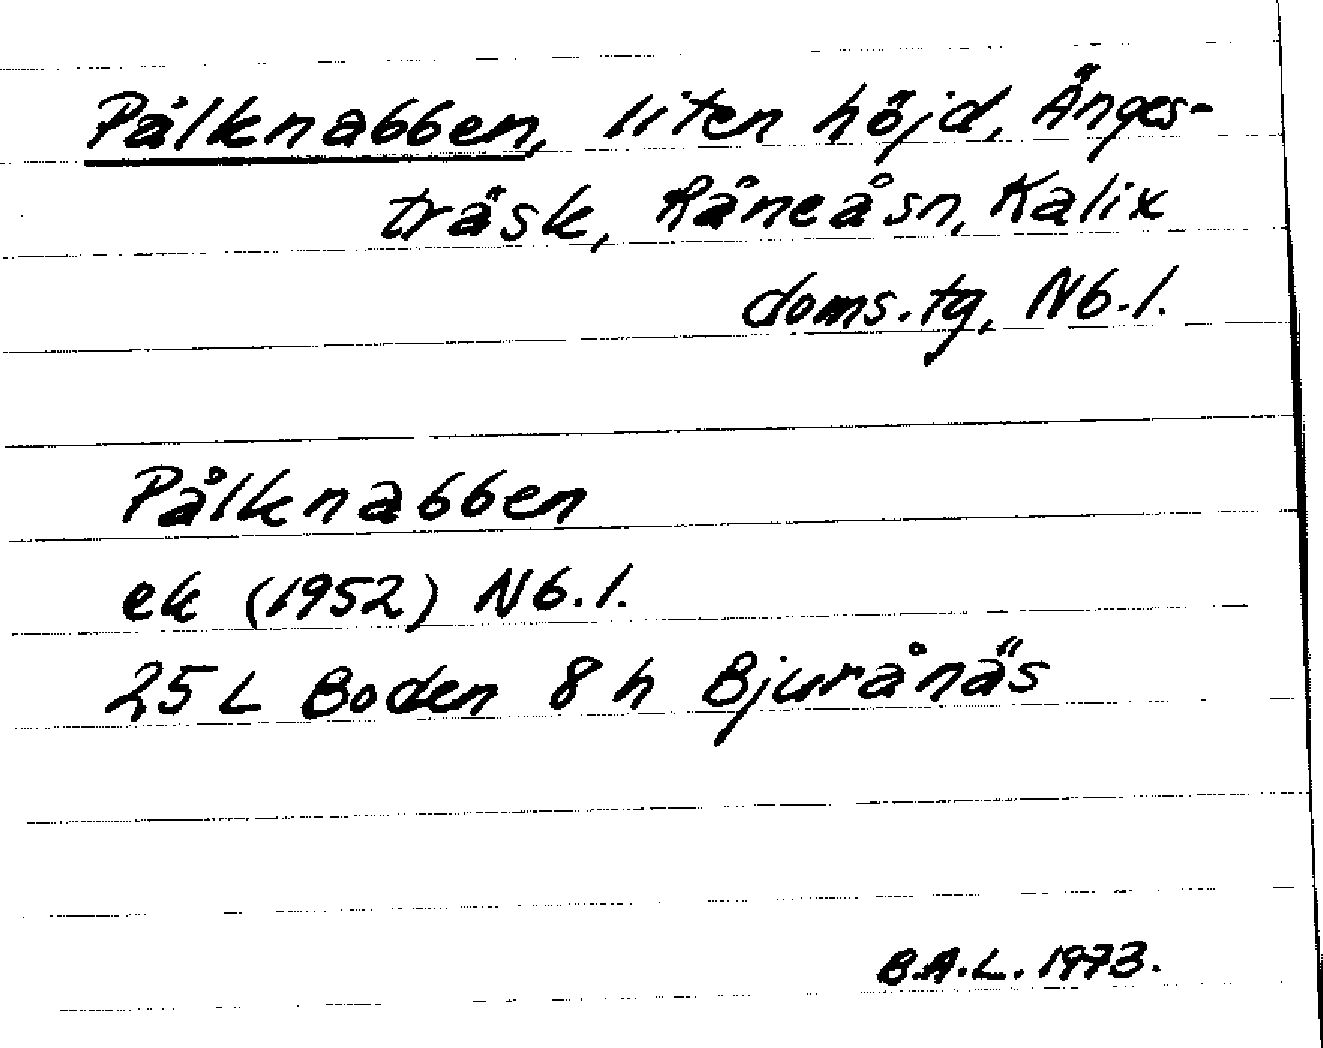 Pålknabben, liten höjd, Änges-
träsk, Råneå sn, Kalix
doms. tg, Nb. l.
Pålknabben
ek (1952) Nb. l.
25 L Boden 8 h Bjurånäs
B.A.L. 1973.